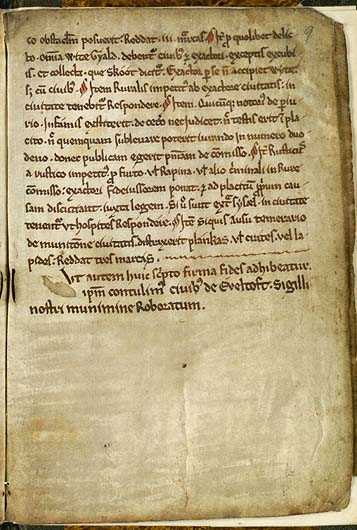 co obstaclm posuerit. Reddat .iii. mrcas. It pro quolibet delic
to .omia Wite Gyald. debent ciuibꝫ & exactori. exceptis excubi
is. et collecta. que Skoot dicitur. Exactor p se ñ accipiet wyte.
s; cũ ciuibꝫ. Item Ruralis impetitꝰ ab exactore ciuitatis. in
ciuitate tenebitꝰ Respondere. Item. Quicunqꝫ notatꝰ de piu
rio. Infamis extiterit. de cetero nec judicet. ñ testis erit ī pla
cito. ñ quemquam subleuare poterit iurando in numero duo
deno. donec publicam egerit pniam de cōmisso. Itē Rusticꝰ
a rustico impetitꝰ. p furto. vł Rapina. vł alio criminali in Rure
cōmisso. exactori fideiussorem ponat. & ad placitum ipsum cau
sam discutiant. iuxta legem. Si ũ sunt exercitus. in ciuitate
tenentꝰ vt hospites Respondere. Item Siquis ausu temerario
de munitione ciuitatis distraxerit plankas. vł cuntes. vel la
pides. Reddat tres marcis.
Vt autem huic scipto firma fides adhibeatur.
ipm contulimꝰ ciuibꝫ de Eueltoft. Sigilli
nostri munimine Roboratum.
9